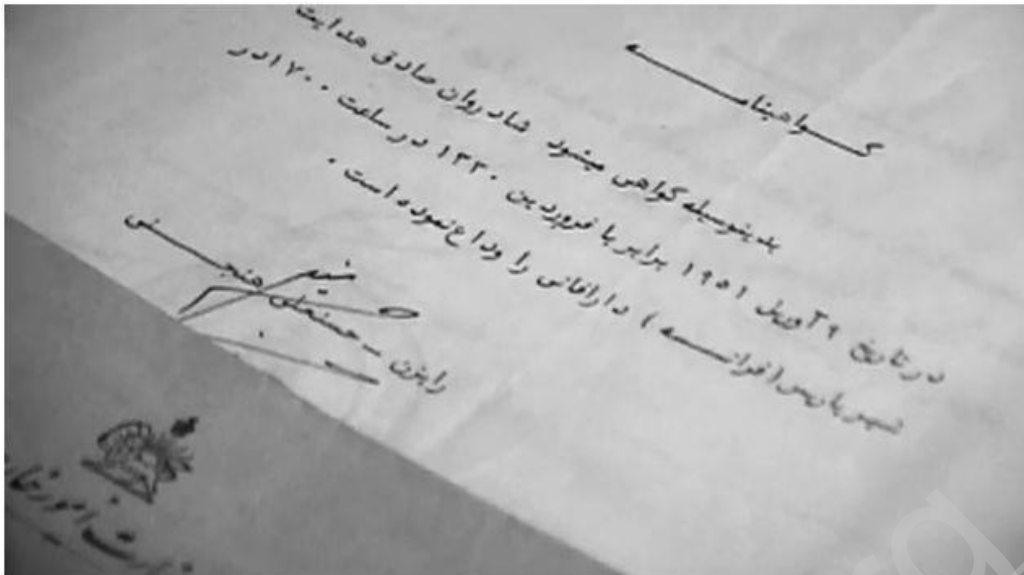 گواهینامه
بدینوسیله گواهی میشود شادروان صادق هدایت
در تاریخ ۹ آوریل ۱۹۵۱ برابر با فروردین ۱۳۳۰ در ساعت ۱۷۰۰ در
شهر پاریس (فرانسه) دارفانی را وداع نموده است.
حسنعلی
امورخا